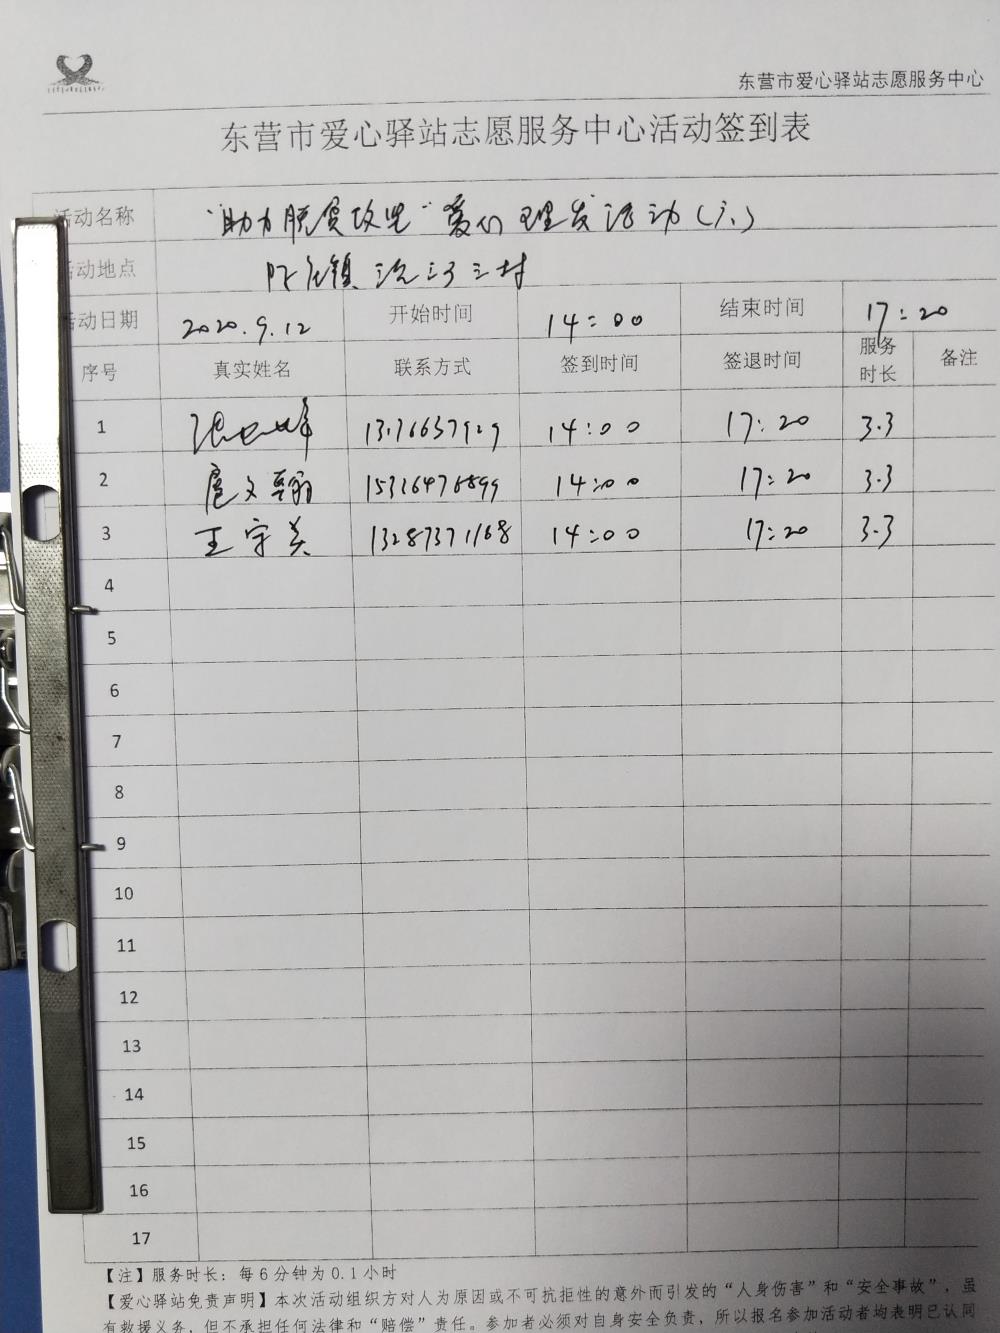 东营市爱心驿站志愿服务中心
东营市爱心驿站志愿服务中心活动签到表
活动名称 "助力脱贫攻坚"爱心理发活动(六)
活动地点 陈庄镇 三村
活动日期 2020.9.12 开始时间 14:00 结束时间 17:20
序号 真实姓名 联系方式 签到时间 签退时间 服务时长 备注
1 14:00 17:20 3.3
2 扈文翰 15316476899 14:00 17:20 3.3
3 王守英 13287371168 14:00 17:20 3.3
4
5
6
7
8
9
10
11
12
13
14
15
16
17
【注】服务时长：每6分钟为0.1小时
【爱心驿站免责声明】本次活动组织方对人为原因或不可抗拒性的意外而引发的“人身伤害”和“安全事故”，虽
有救援义务，但不承担任何法律和“赔偿”责任。参加者必须对自身安全负责，所以报名参加活动者均表明已认同